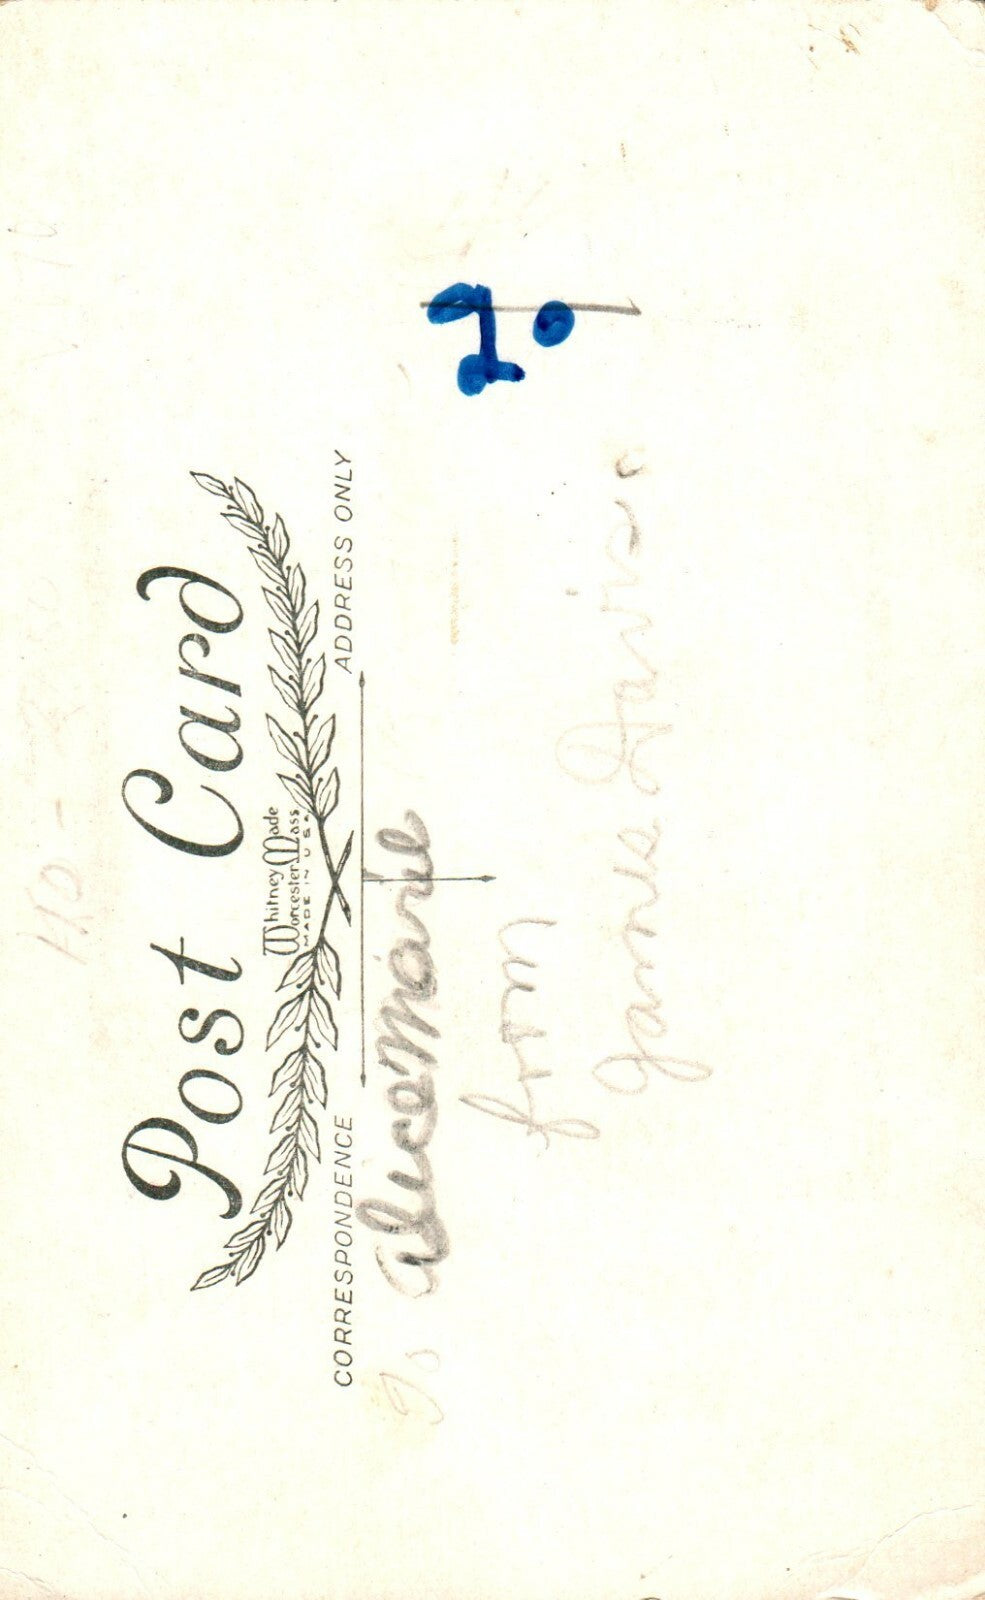 Post Card
Whitney Made
Worcester Mass
MADE IN U.S.A.
CORRESPONDENCE
ADDRESS ONLY
To Alice Marie
from
James Davis.